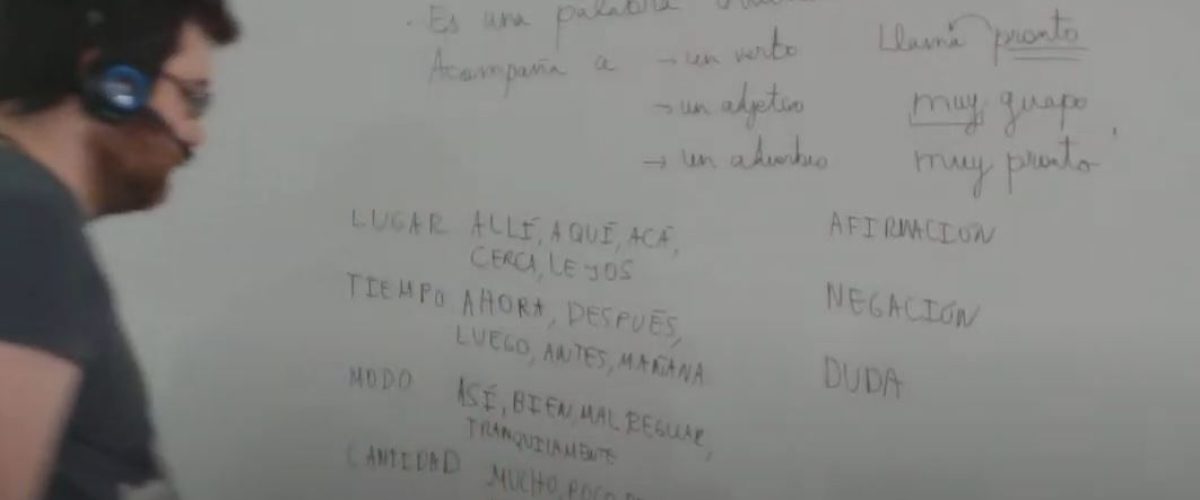 · Es una palabra
Acompaña a → un verbo Llama pronto
→ un adjetivo muy guapo
→ un adverbio muy pronto
LUGAR ALLÍ, AQUÍ, ACÁ, AFIRMACION
CERCA, LEJOS
TIEMPO AHORA, DESPUÉS, NEGACIÓN
LUEGO, ANTES, MAÑANA
MODO ASÍ, BIEN, MAL, REGULAR, DUDA
TRANQUILAMENTE
CANTIDAD MUCHO, POCO,